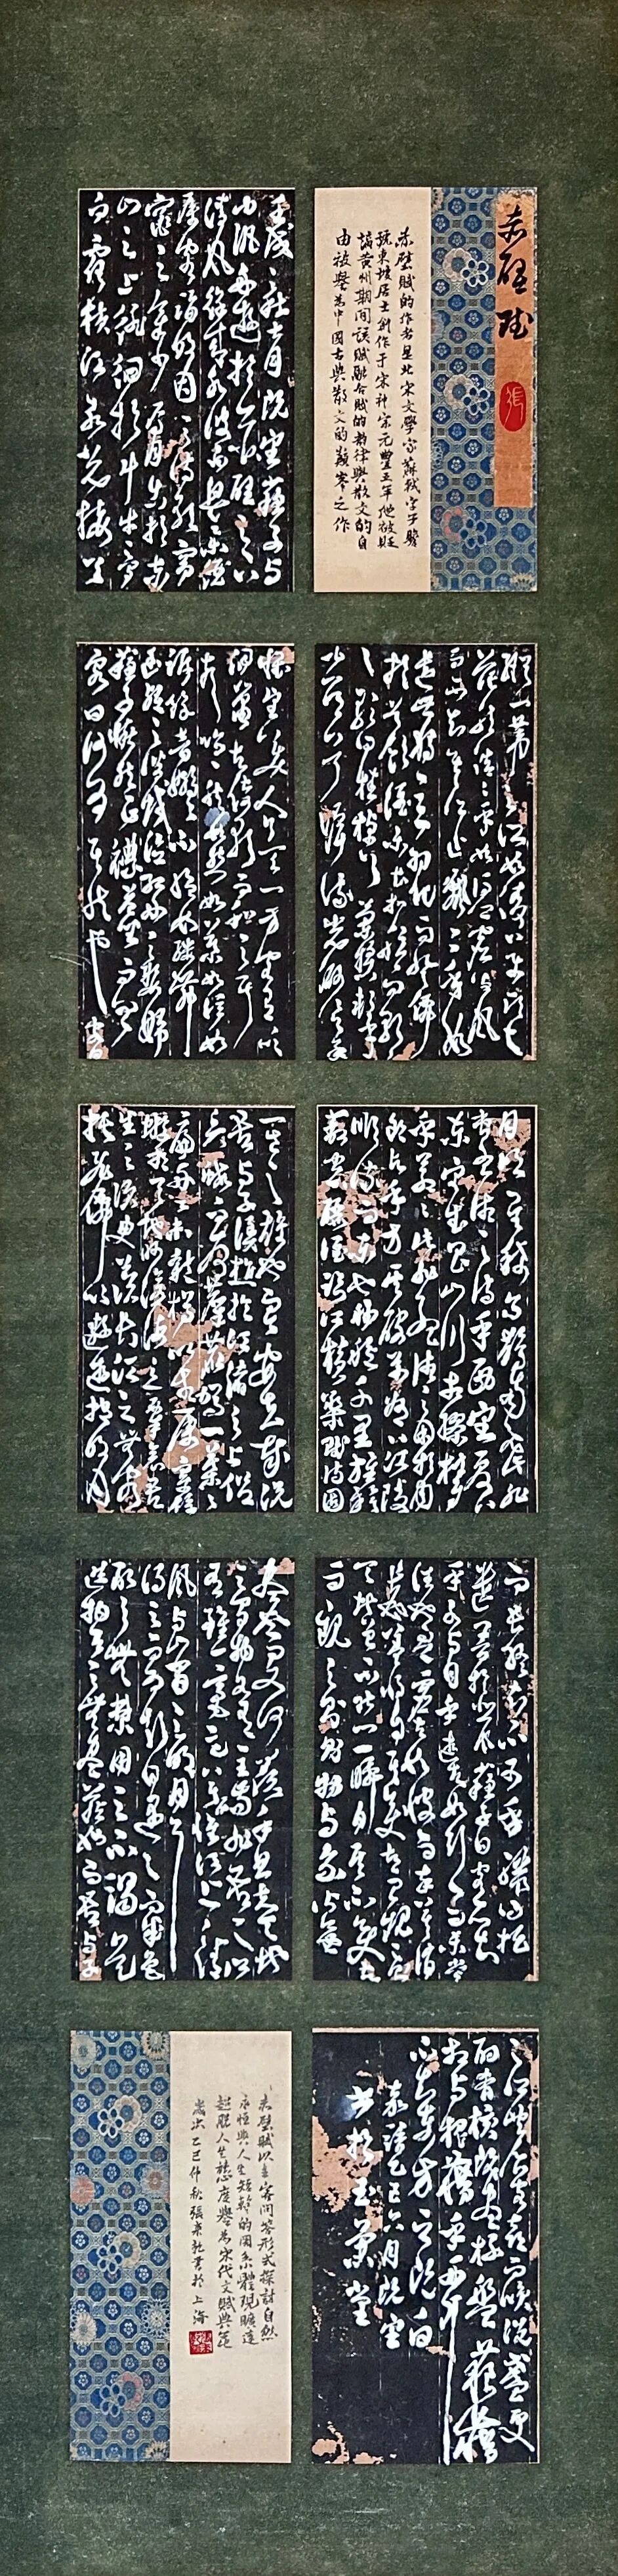 赤壁賦
張
赤壁賦的作者是北宋文學家蘇軾字子瞻
號東坡居士創作于宋神宗元豐五年他被貶
謫黃州期間該賦融合賦的韵律與散文的自
由被譽為中國古典散文的巔峰之作
壬戌之秋七月既望蘇子与
客泛舟遊於赤壁之下
清風徐來水波不興舉酒
屬客誦明月之詩歌窈
窕之章少焉月出於東
山之上徘徊於斗牛之間
白露橫江水光接天
縱一葦之所如凌萬頃之
茫然浩浩乎如馮虛御風
而不知其所止飄飄乎如
遺世獨立羽化而登仙
於是飲酒樂甚扣舷而歌
之歌曰桂棹兮蘭槳擊空
明兮泝流光渺渺兮予
懷望美人兮天一方客有吹
洞簫者倚歌而和之其
聲嗚嗚然如怨如慕如泣如
訴餘音嫋嫋不絕如縷舞
幽壑之潛蛟泣孤舟之嫠婦
蘇子愀然正襟危坐而問
客曰何為其然也客曰
月明星稀烏鵲南飛此非
孟德之詩乎西望夏口
東望武昌山川相繆鬱
乎蒼蒼此非孟德之困於周
郎者乎方其破荊州下江陵
順流而東也舳艫千里旌旗
蔽空釃酒臨江橫槊賦詩固
一世之雄也而今安在哉況
吾与子漁樵於江渚之上侶
魚蝦而友麋鹿駕一葉之
扁舟舉匏樽以相屬寄蜉
蝣於天地渺滄海之一粟哀吾
生之須臾羨長江之無窮
挾飛仙以遨遊抱明月
而長終知不可乎驟得托
遺響於悲風蘇子曰客亦知
夫水与月乎逝者如斯而未嘗
往也盈虛者如彼而卒莫消
長也蓋將自其變者而觀之則
天地曾不能以一瞬自其不變者
而觀之則物与我皆無盡
也而又何羨乎且夫天地
之間物各有主苟非吾之所
有雖一毫而莫取惟江上之清
風与山間之明月耳
得之而為聲目遇之而成色
取之無禁用之不竭是
造物者之無盡藏也而吾与子
之所共食客喜而笑洗盞更
酌肴核既盡杯盤狼藉
相与枕藉乎舟中
不知東方之既白
嘉靖乙巳六月既望
書於玉蘭堂
赤壁賦以主客問答形式探討自然
永恒與人生短暫的關系體現曠達
超脱人生態度譽為宋代文賦典範
歲次乙巳仲秋張秉乾書於上海